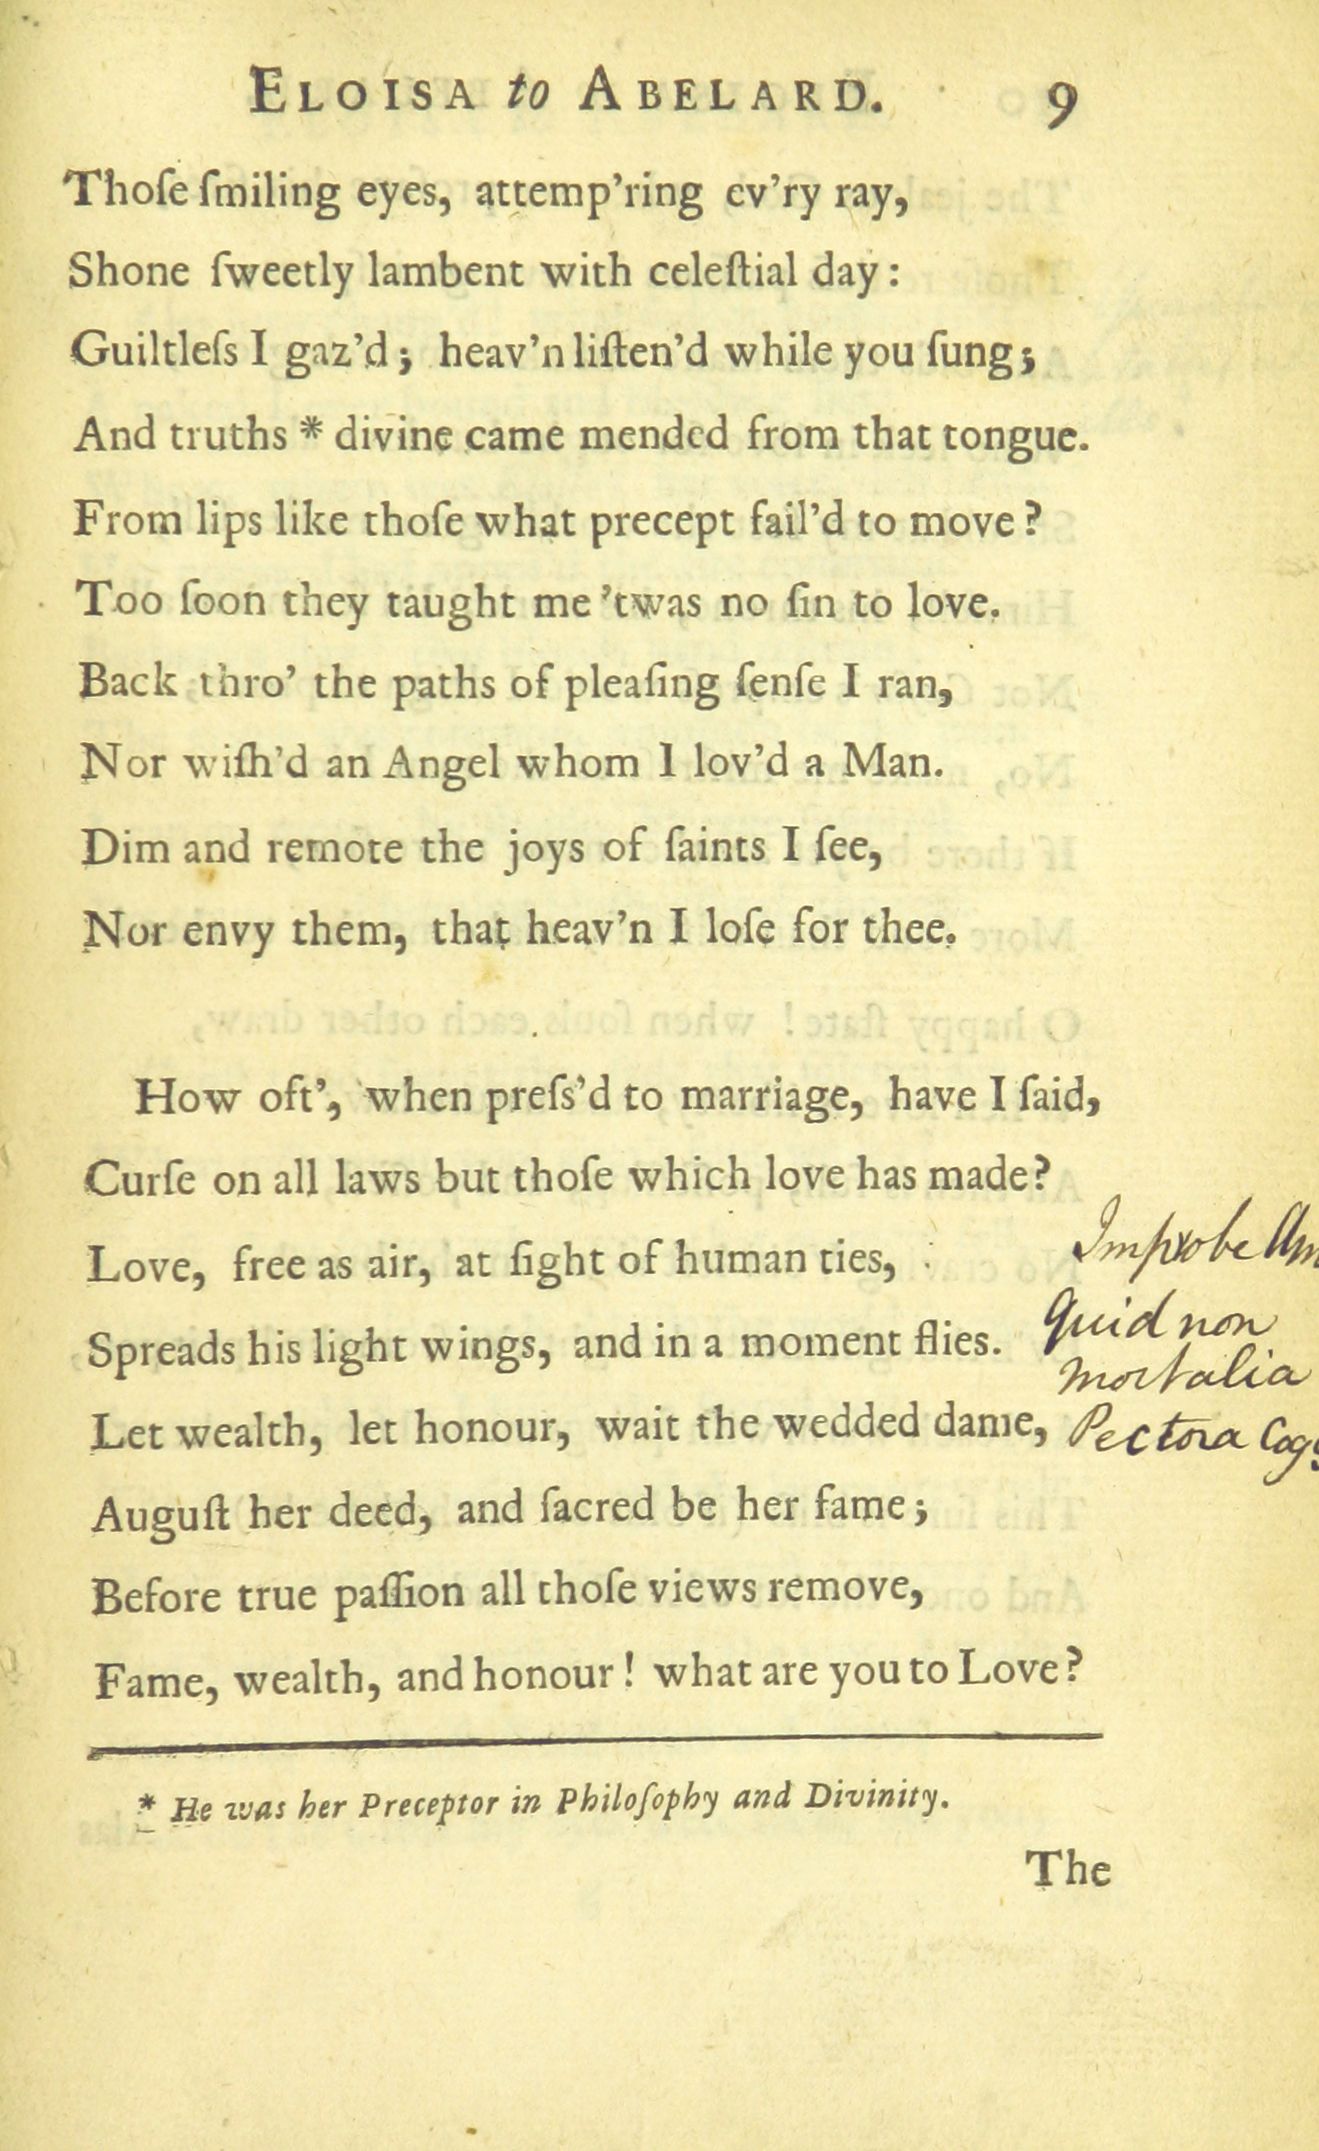 ELOISA to ABELARD. 9
Thoſe ſmiling eyes, attemp'ring ev'ry ray,
Shone ſweetly lambent with celeſtial day:
Guiltleſs I gaz'd; heav'n liſten'd while you ſung;
And truths * divine came mended from that tongue.
From lips like thoſe what precept fail'd to move?
Too ſoon they taught me 'twas no ſin to love.
Back thro' the paths of pleaſing ſenſe I ran,
Nor wiſh'd an Angel whom I lov'd a Man.
Dim and remote the joys of ſaints I ſee,
Nor envy them, that heav'n I loſe for thee.
How oft', when preſs'd to marriage, have I ſaid,
Curſe on all laws but thoſe which love has made?
Love, free as air, at ſight of human ties,
Spreads his light wings, and in a moment flies.
Let wealth, let honour, wait the wedded dame,
Auguſt her deed, and ſacred be her fame;
Before true paſſion all thoſe views remove,
Fame, wealth, and honour! what are you to Love?
Improbe Am
quid non
mortalia
Pectora Cog
* He was her Preceptor in Philoſophy and Divinity.
The